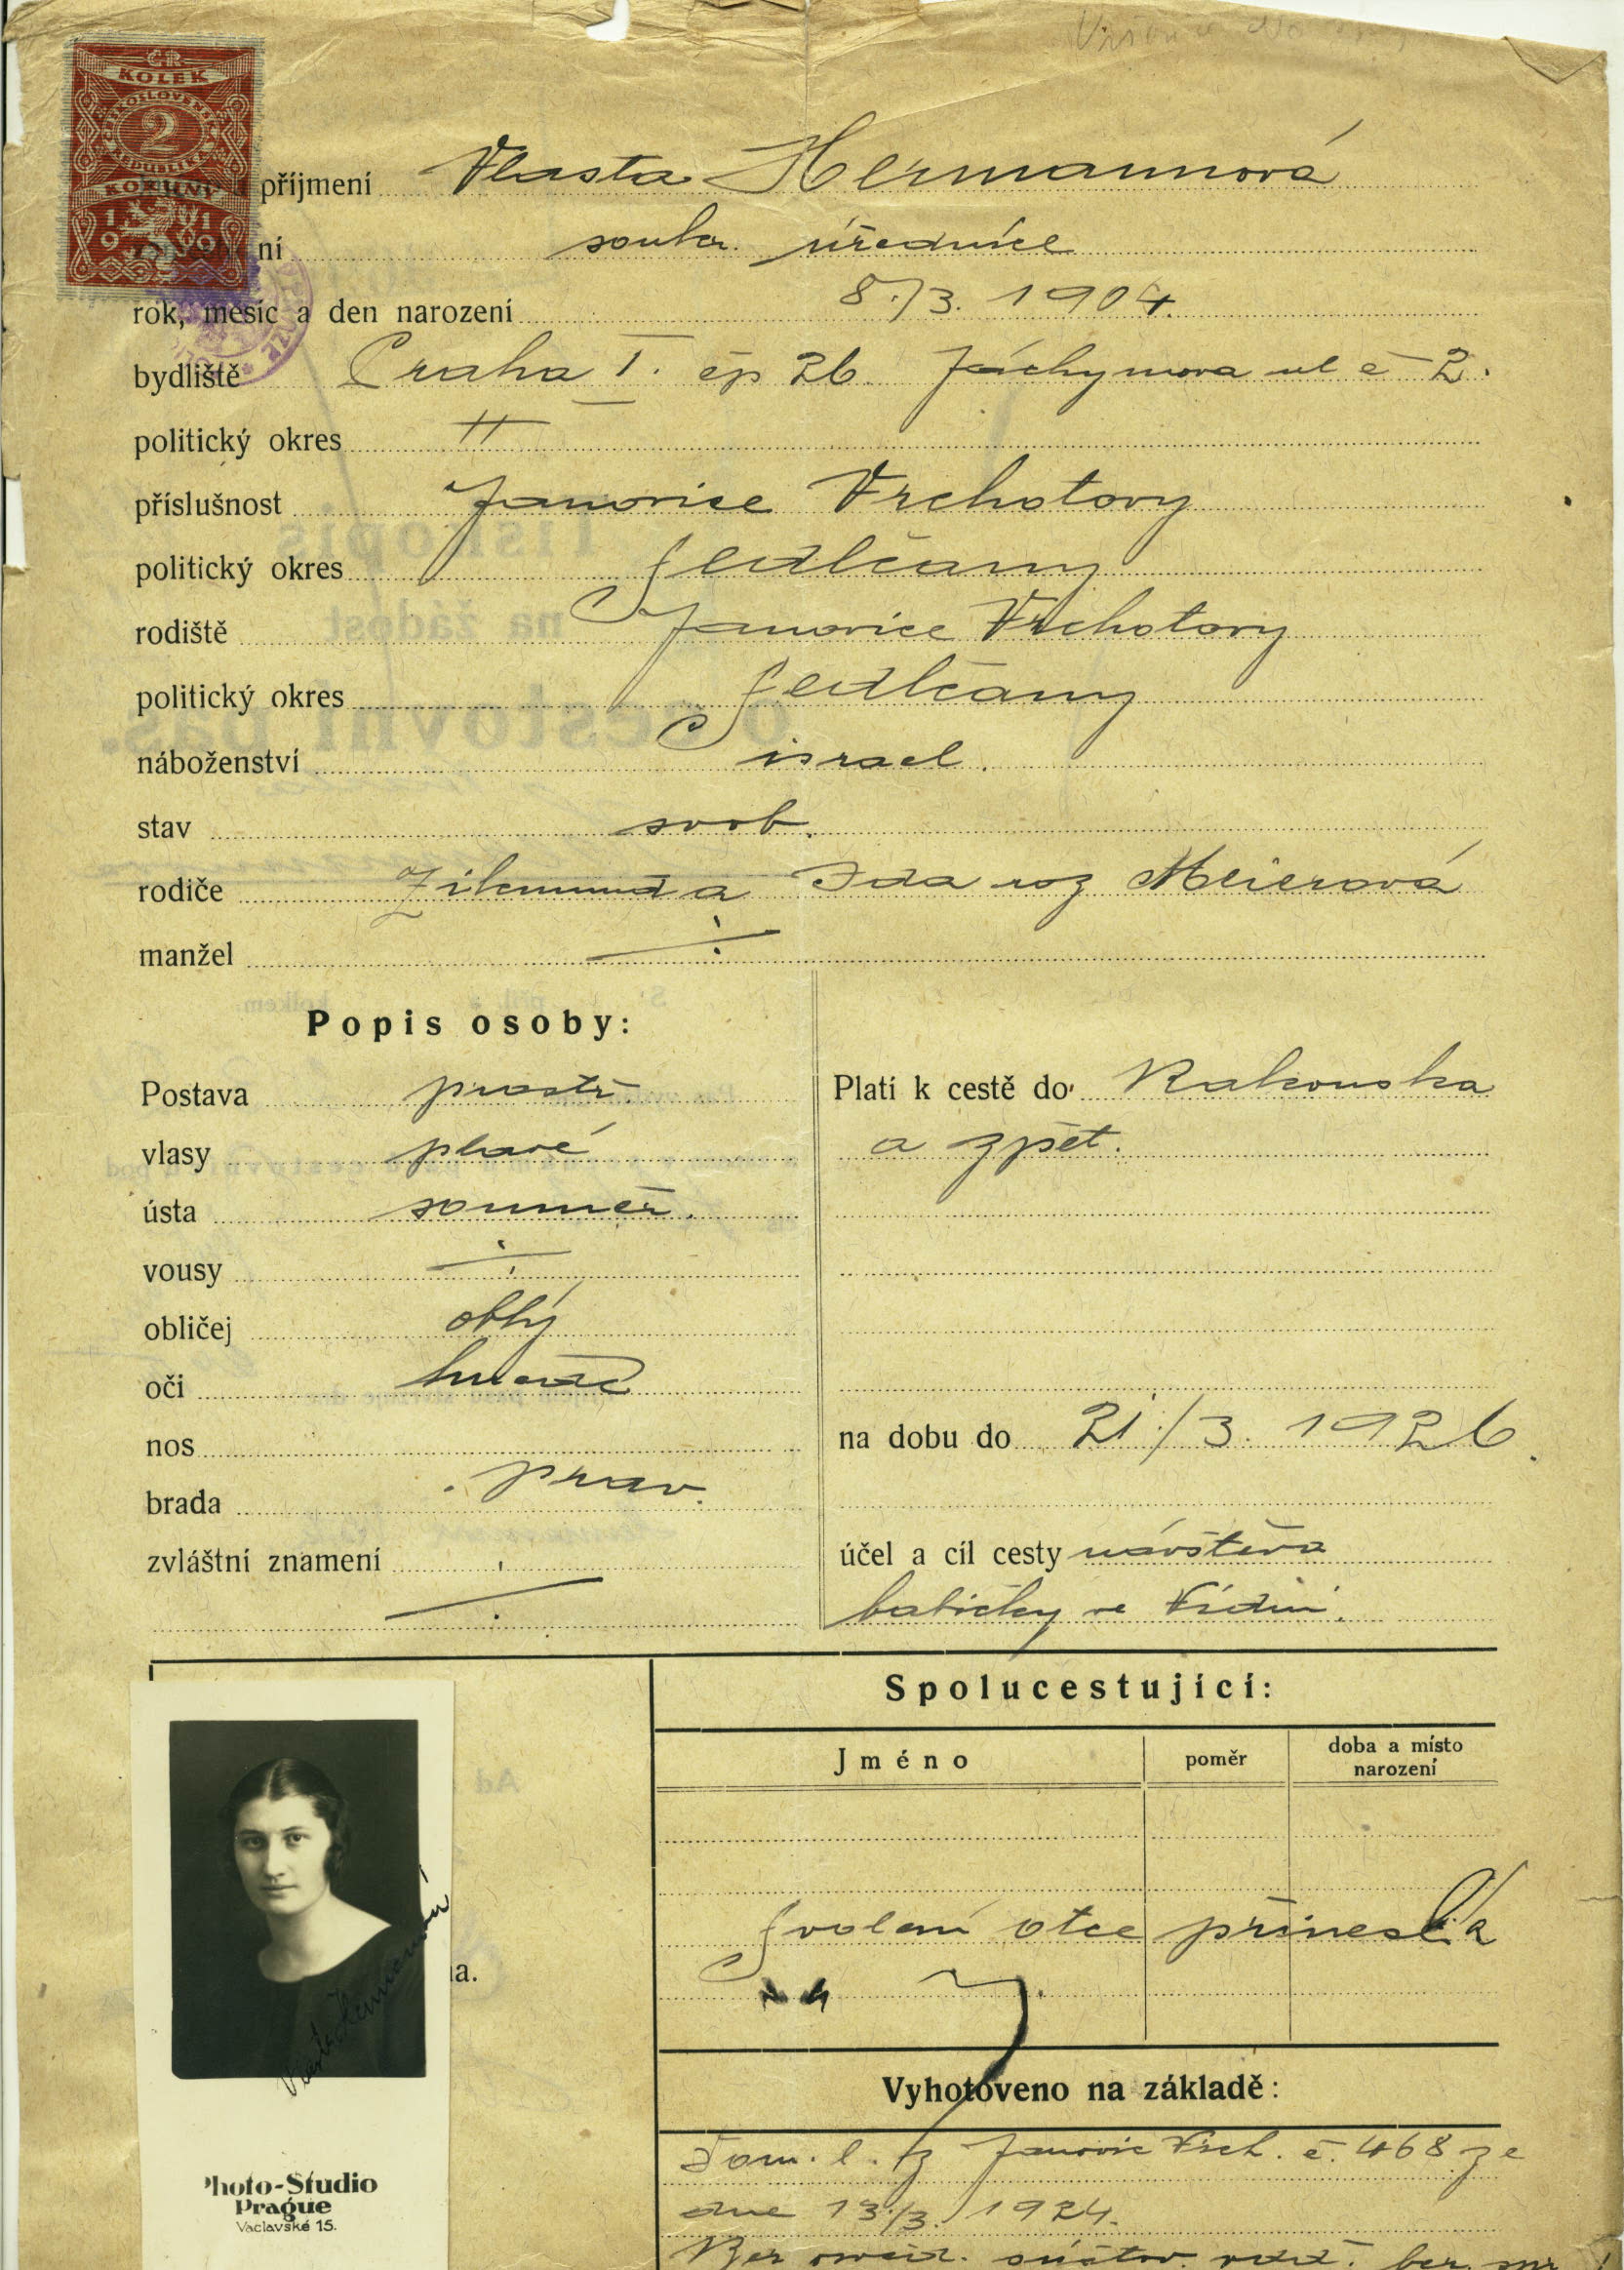 ČR
KOLEK
ČESKOSLOVENSKÁ
2
REPUBLIKA
KORUNY
19 19
příjmení Vlasta Hermannová
ní soukr. úřednice
rok, měsíc a den narození 8./3. 1904.
bydliště Praha I. čp 26 Jáchymova ul č 2.
politický okres "
příslušnost Janovice Vrchotovy
politický okres Sedlčany
rodiště Janovice Vrchotovy
politický okres Sedlčany
náboženství israel.
stav svob.
rodiče a Ida roz Meierová
manžel ÷
Popis osoby:
Postava prostř.
vlasy plavé
ústa souměr.
vousy ÷
obličej oblý
oči hnědé
nos
brada prav.
zvláštní znamení ÷
Platí k cestě do Rakouska
a zpět.
na dobu do 21./3. 1926.
účel a cíl cesty návštěva
babičky ve Vídni.
Spolucestující:
Jméno poměr doba a místo narození
Svolení otce přinesla
Vyhotoveno na základě:
Dom. l. z Janovic Vrch. č. 468 ze
dne 13./3. 1924.
Vlasta Hermannová
la.
Photo-Studio
Prague
Vaclavské 15.